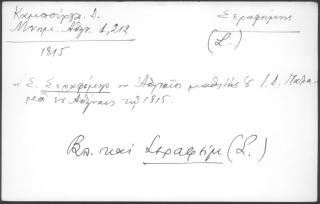 Καμπούρογλ. Δ.
Μνημ. Αθην. Α, 212
Σεραφίμης
(Σ.)
1815
" Σ. Σεραφίμης " Αθηναίος μαθητής
Ι. Δ. Παλαμά εν Αθήναις τω 1815.
Βλ. και Σεραφείμ (Σ.)